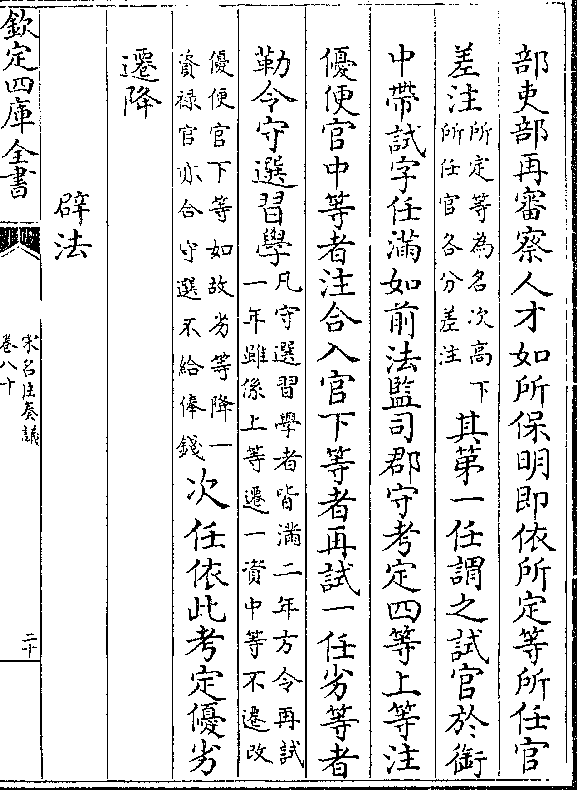 部吏部再審察人才如所保明即依所定等所任官
差注
所定等為名次高下
所任官各分差注
其第一任謂之試官於銜
中帶試字任滿如前法監司郡守考定四等上等注
優便官中等者注合入官下等者再試一任劣等者
勒令守選習學
凡守選習學者皆滿二年方令再試
一年雖係上等遷一資中等不遷改
優便官下等如故劣等降一
資禄官亦合守選不給俸錢
次任依此考定優劣
遷降
辟法
欽定四庫全書
宋名臣奏議
卷八十
二十